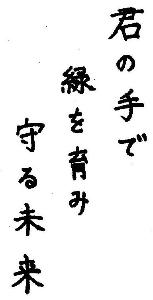 君の手で
緑を育み
守る未来